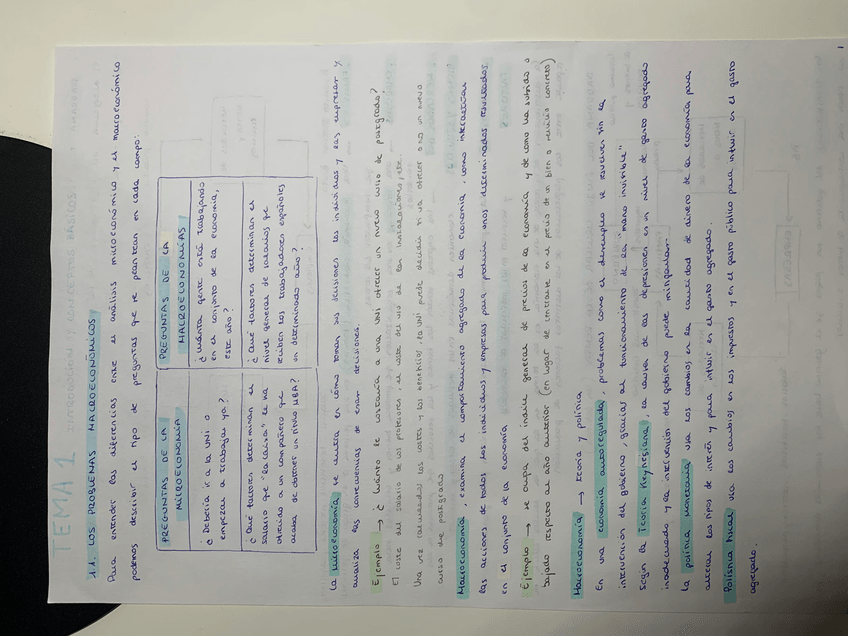 TEMA 1 INTRODUCCIÓN Y CONCEPTOS BÁSICOS
1.1. LOS PROBLEMAS MACROECONÓMICOS
Para entender las diferencias entre el análisis microeconómico y el macroeconómico
podemos describir el tipo de preguntas que se plantean en cada campo:
PREGUNTAS DE LA
MICROECONOMÍA
¿Debería ir a la UNI o
empezar a trabajar ya?
¿Qué factores determinan el
salario que "la Caixa" le ha
ofrecido a un compañero que
acaba de obtener un título MBA?
PREGUNTAS DE LA
MACROECONOMÍAS
¿Cuánta gente está trabajando
en el conjunto de la economía,
este año?
¿Qué factores determinan el
nivel general de salarios que
reciben los trabajadores españoles
un determinado año?
La microeconomía se centra en cómo toman sus decisiones los individuos y las empresas y
analiza las consecuencias de esas decisiones.
Ejemplo → ¿Cuánto le costaría a una UNI ofrecer un nuevo curso de postgrado?
El coste del salario de los profesores, el coste del uso de las instalaciones, etc.
Una vez calculados los costes y los beneficios, la UNI puede decidir si va ofrecer o no un nuevo
curso de postgrado
Macroeconomía, examina el comportamiento agregado de la economía, como interactúan
las acciones de todos los individuos y empresas para producir unos determinados resultados
en el conjunto de la economía
Ejemplo → se ocupa del índice general de precios de la economía y de como ha subido o
bajado respecto al año anterior (en lugar de centrarse en el precio de un bien o servicio concreto)
Macroeconomía → teoría y política
En una economía autorregulada, problemas como el desempleo se resuelven sin la
intervención del gobierno, gracias al funcionamiento de la "mano invisible"
Según la Teoría Keynesiana, la causa de las depresiones es un nivel de gasto agregado
inadecuado y la intervención del gobierno puede mitigarlas.
La política monetaria usa los cambios en la cantidad de dinero de la economía para
alterar los tipos de interés y para influir en el gasto agregado.
Política fiscal usa los cambios en los impuestos y en el gasto público para influir en el gasto
agregado.
1